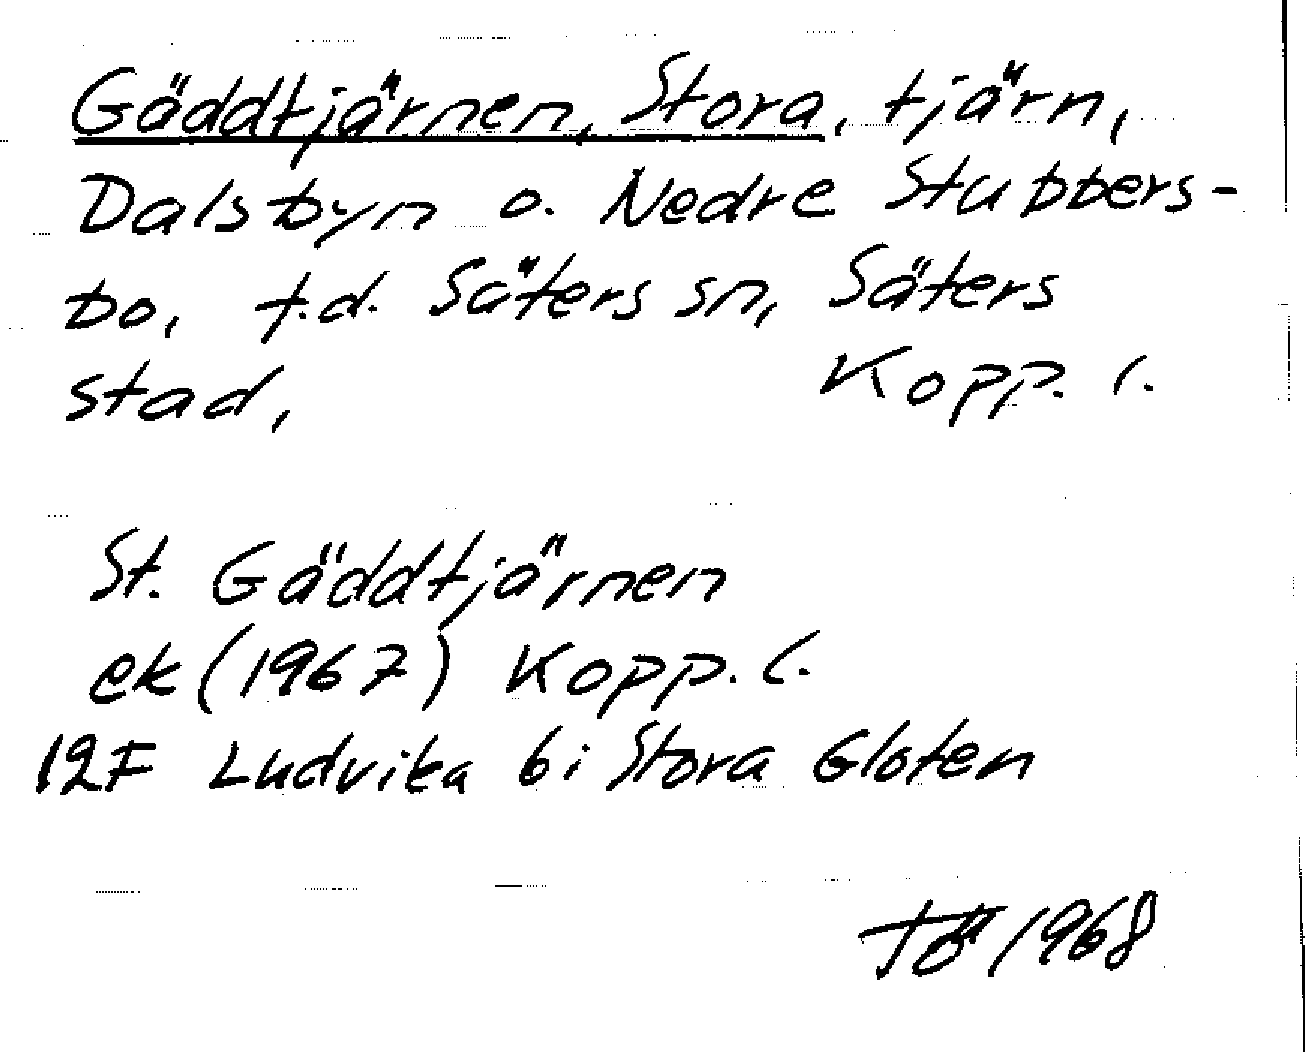 Gäddtjärnen, Stora, tjärn,
Dalsbyn o. Nedre Stubbers-
bo, f.d. Säters sn, Säters
stad, Kopp. l.
St. Gäddtjärnen
ek (1967) Kopp. l.
12F Ludvika 6i Stora Gloten
TÖ 1968